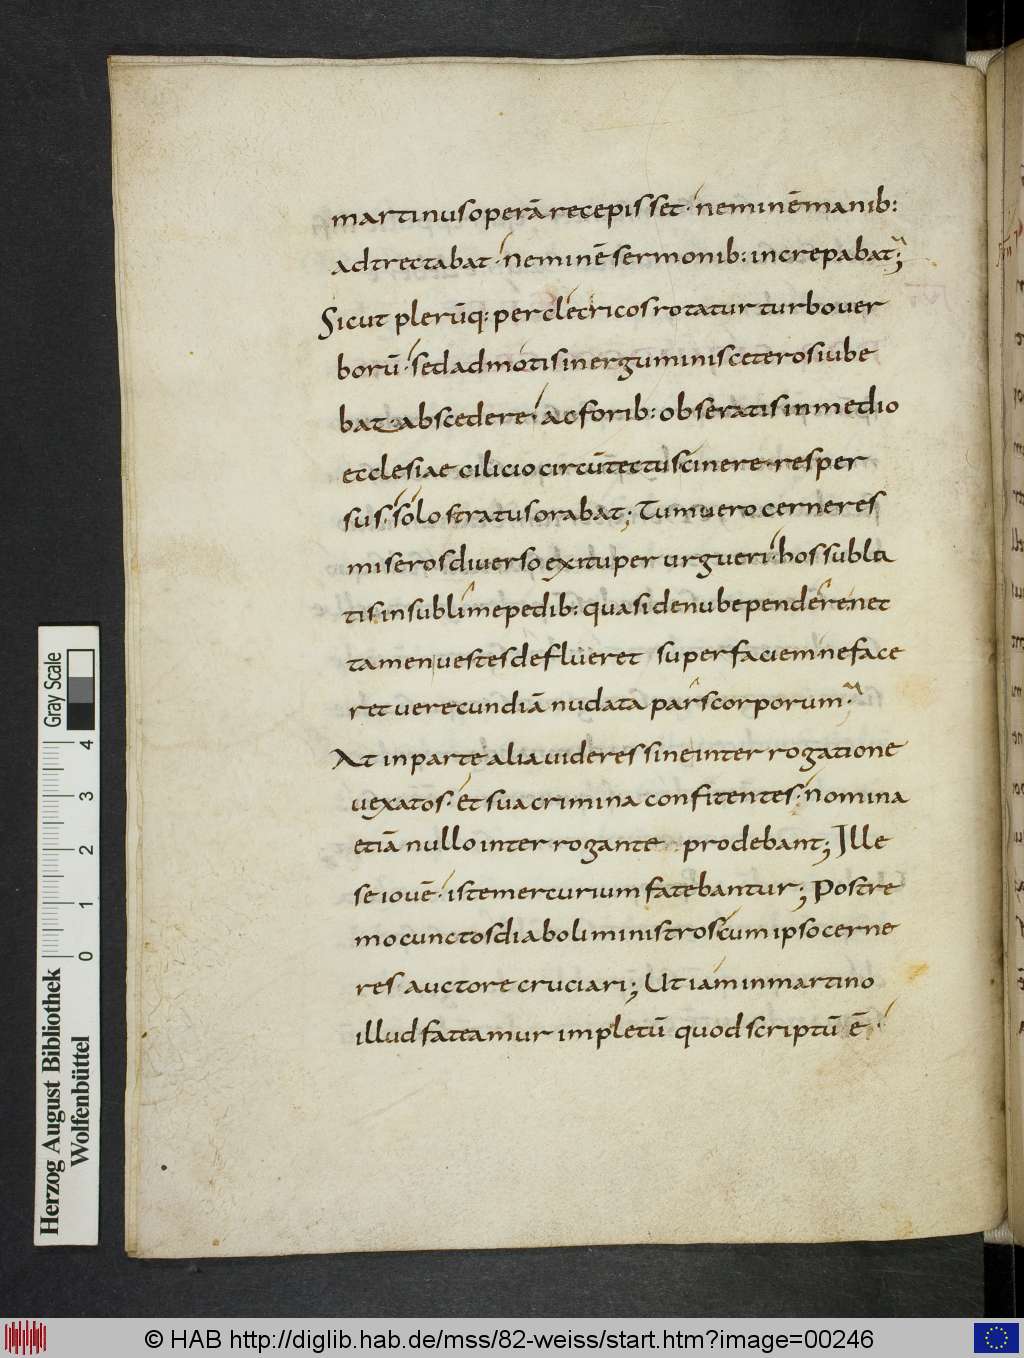 martinus operā recepisset · neminē manib:
adtrectabat · neminē sermonib: increpabat;
Sicut plerūq: per clericos rotatur turbo ver
borū · sed admotis inerguminis ceteros iube
bat · abscedere · ac forib: obseratis in medio
ecclesiae cilicio circūtectus cinere · resper
sus · solo stratus orabat; Tum uero cerneres
miseros diuerso exitu perurgueri · hos subla
tis in sublime pedib: quasi de nube pendere · nec
tamen uestes deflueret super faciem ne face
ret uerecundiā nudata pars corporum;
At in parte alia uideres sine interrogatione
uexatos · et sua crimina confitentes · nomina
etiā nullo interrogante prodebant; Ille
se iouē · iste mercurium fatebantur; Postre
mo cunctos diaboli ministros cum ipso cerne
res auctore cruciari; Ut iam in martino
illud fateamur impletū quod scriptū ē ·
Herzog August Bibliothek
Wolfenbüttel
Gray Scale
0 1 2 3 4
© HAB http://diglib.hab.de/mss/82-weiss/start.htm?image=00246